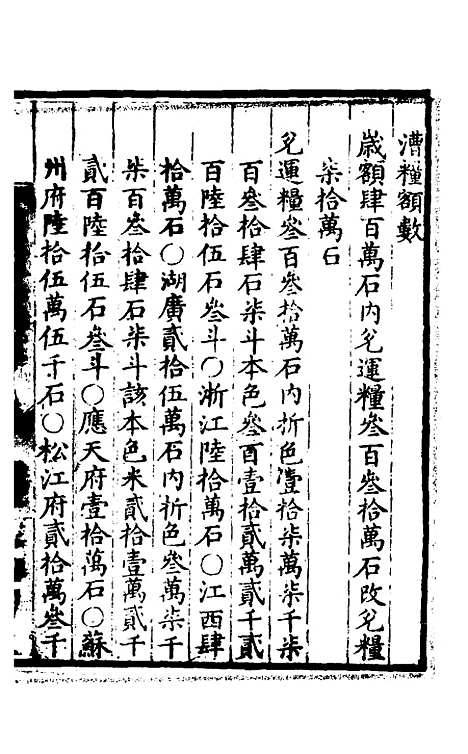 漕糧額數
歲額肆百萬石內兌運糧叄百叄拾萬石改兌糧
柒拾萬石
兌運糧叄百叄拾萬石內折色壹拾柒萬柒千柒
百叄拾肆石柒斗本色叄百壹拾貳萬貳千貳
百陸拾伍石叄斗○浙江陸拾萬石○江西肆
拾萬石○湖廣貳拾伍萬石內折色叄萬柒千
柒百叄拾肆石柒斗該本色米貳拾壹萬貳千
貳百陸拾伍石叄斗○應天府壹拾萬石○蘇
州府陸拾伍萬伍千石○松江府貳拾萬叄千